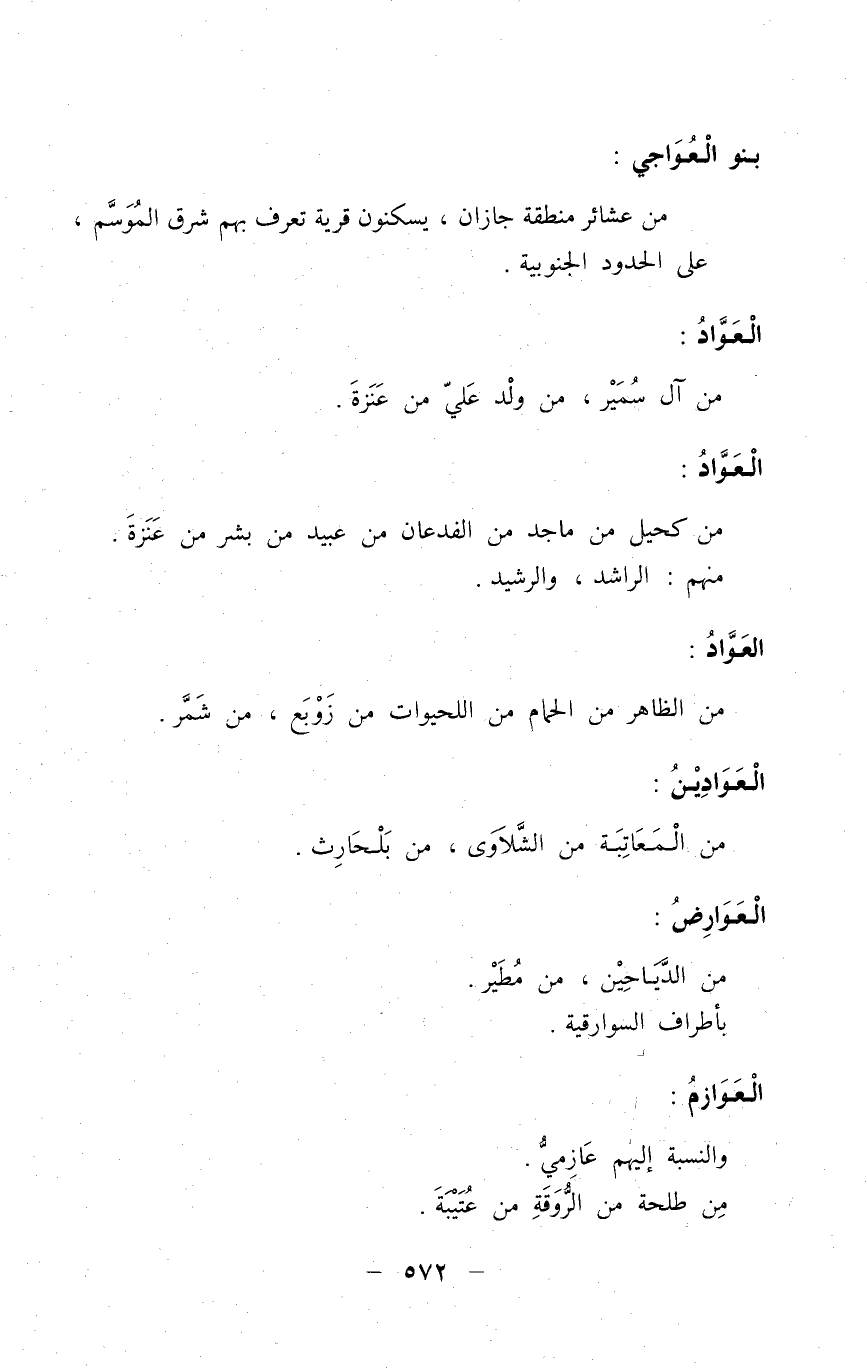 بنو الْعُوَاجي :
من عشائر منطقة جازان ، يسكنون قرية تعرف بهم شرق المُوَسَّم ،
على الحدود الجنوبية .
الْعَوَّادُ :
من آل سُمَيْر ، من ولْد عَليّ من عَنَزةَ .
الْعَوَّادُ :
من كحيل من ماجد من الفدعان من عبيد من بشر من عَنَزةَ .
منهم : الراشد ، والرشيد .
العَوَّادُ :
من الظاهر من الحمام من اللحيوات من زَوْبَع ، من شَمَّر .
الْعَوَادِيْنُ :
من الْمَعَاتِبَة من الشَّلاَوَى ، من بَلْحَارِث .
الْعَوَارِضُ :
من الدَّيَاحِيْن ، من مُطَيْر .
بأطراف السوارقية .
الْعَوَازمُ :
والنسبة إليهم عَازِميٌّ .
مِن طلحة من الرُّوَقَةِ من عُتَيْبَةَ .
– ٥٧٢ –